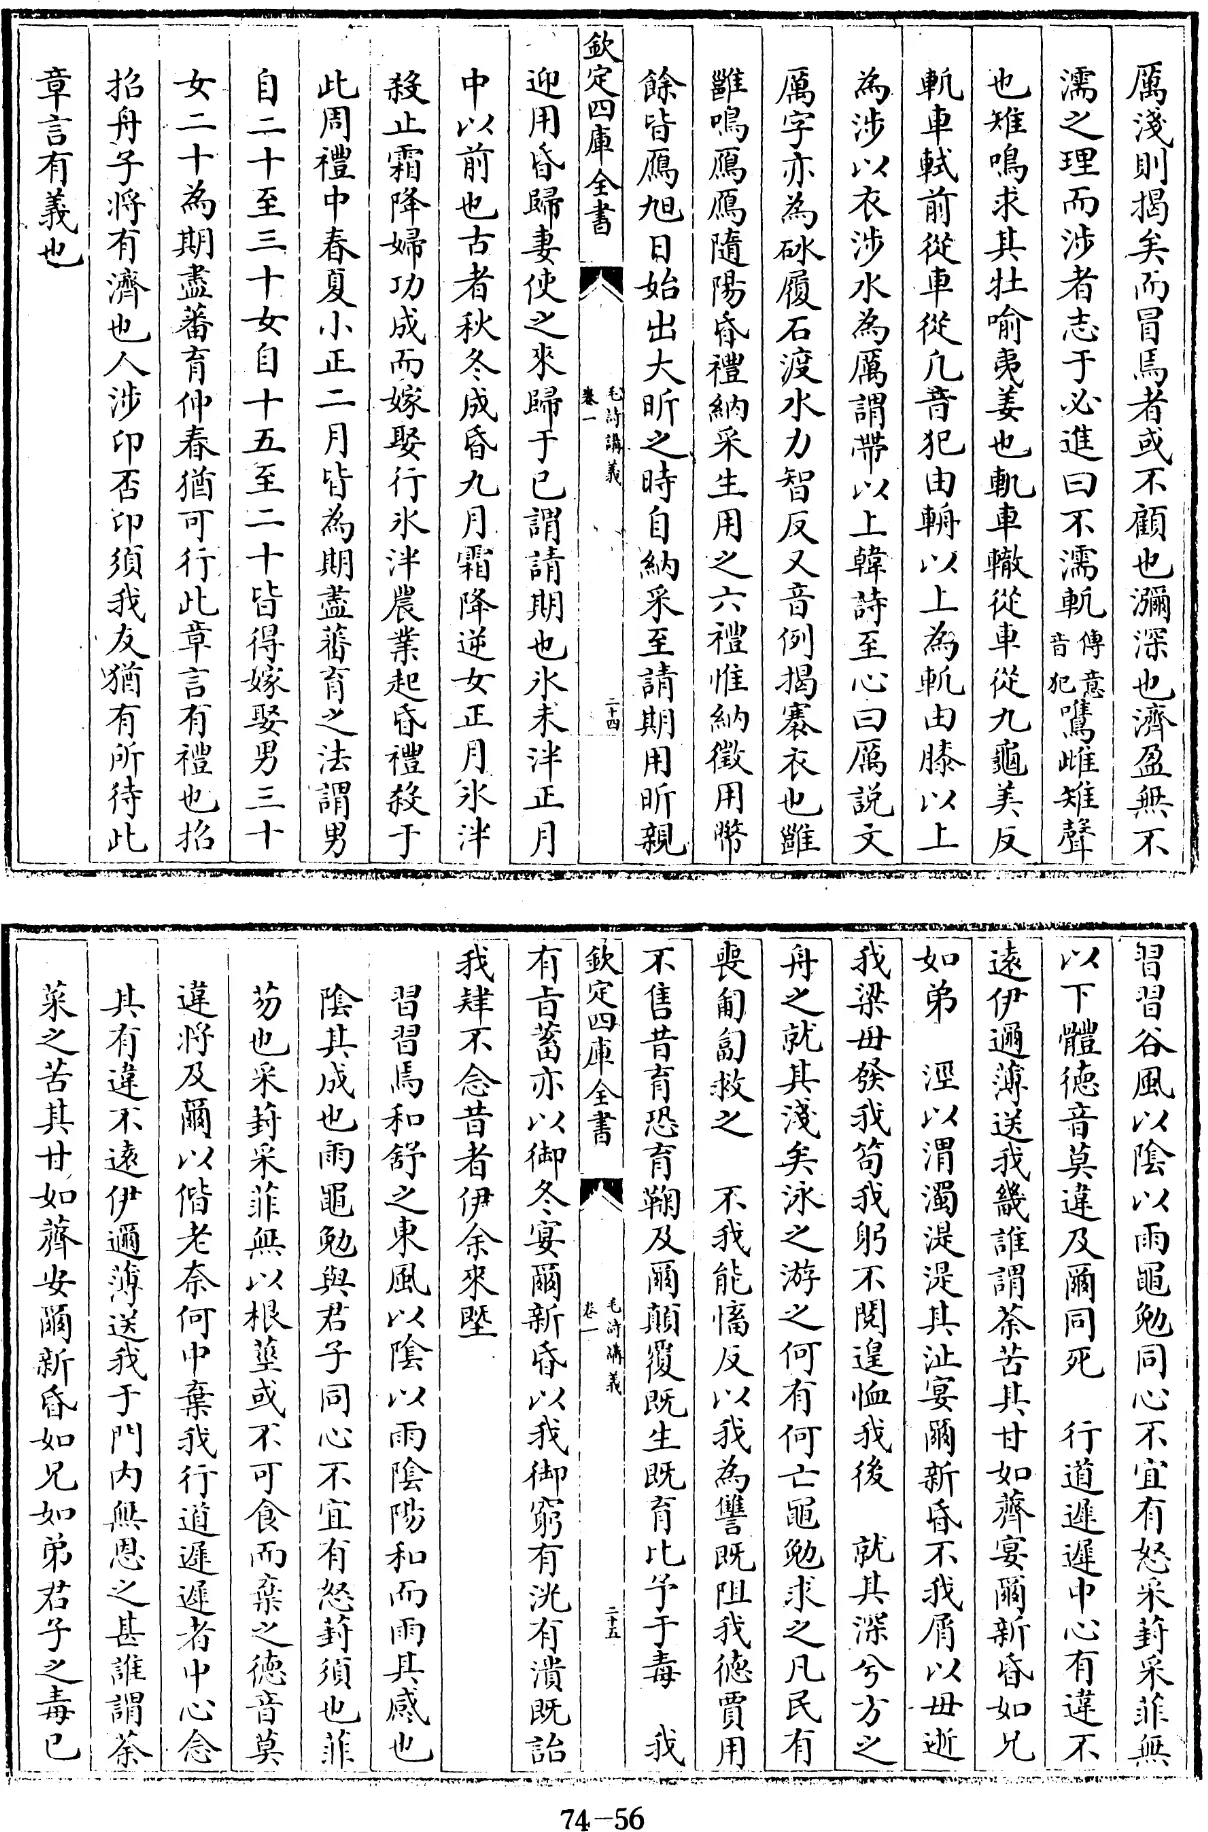 厲淺則揭矣而冒焉者或不顧也瀰深也濟盈無不
濡之理而涉者志于必進曰不濡軌傳意音犯鷕雌雉聲
也雉鳴求其牡喻夷姜也軌車轍從車從九龜美反
軓車軾前從車從凢音犯由輈以上為軓由膝以上
為涉以衣涉水為厲謂帶以上韓詩至心曰厲說文
厲字亦為砅履石渡水力智反又音例揭褰衣也雝
雝鳴鴈鴈隨陽昏禮納采生用之六禮惟納徵用幣
餘皆鴈旭日始出大昕之時自納采至請期用昕親
欽定四庫全書
毛詩講義
卷一
二十四
迎用昏歸妻使之來歸于已謂請期也氷未泮正月
中以前也古者秋冬成昏九月霜降逆女正月氷泮
殺止霜降婦功成而嫁娶行氷泮農業起昏禮殺于
此周禮中春夏小正二月皆為期盡蕃育之法謂男
自二十至三十女自十五至二十皆得嫁娶男三十
女二十為期盡蕃育仲春猶可行此章言有禮也招
招舟子將有濟也人涉卬否卬須我友猶有所待此
章言有義也
習習谷風以陰以雨黽勉同心不宜有怒采葑采菲無
以下體德音莫違及爾同死　行道遲遲中心有違不
遠伊邇薄送我畿誰謂荼苦其甘如薺宴爾新昏如兄
如弟　涇以渭濁湜湜其沚宴爾新昏不我屑以毋逝
我梁毋發我笱我躬不閱遑恤我後　就其深兮方之
舟之就其淺矣泳之游之何有何亡黽勉求之凡民有
喪匍匐救之　不我能慉反以我為讐既阻我德賈用
不售昔育恐育鞠及爾顛覆既生既育比予于毒　我
欽定四庫全書
毛詩講義
卷一
二十五
有旨蓄亦以御冬宴爾新昏以我御窮有洸有潰既詒
我肄不念昔者伊余來塈
習習焉和舒之東風以陰以雨陰陽和而雨其感也
陰其成也雨黽勉與君子同心不宜有怒葑須也菲
芴也采葑采菲無以根莖或不可食而棄之德音莫
違將及爾以偕老奈何中棄我行道遲遲者中心念
其有違不遠伊邇薄送我于門内無恩之甚誰謂荼
菜之苦其甘如薺安爾新昏如兄如弟君子之毒已
74-56